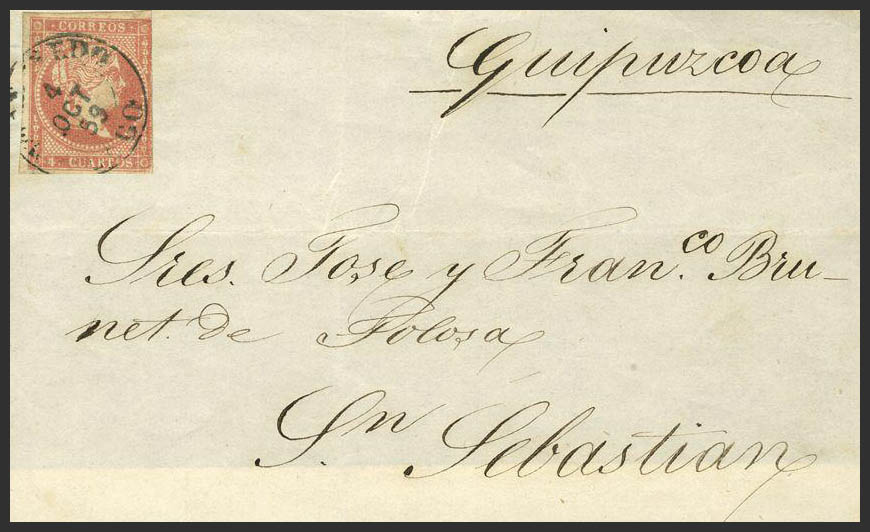 CORREOS
4 CUARTOS
4
OCT
59
Guipuzcoa
Sres. Jose y Fran.co Bru-
net. de Tolosa
Sn Sebastian